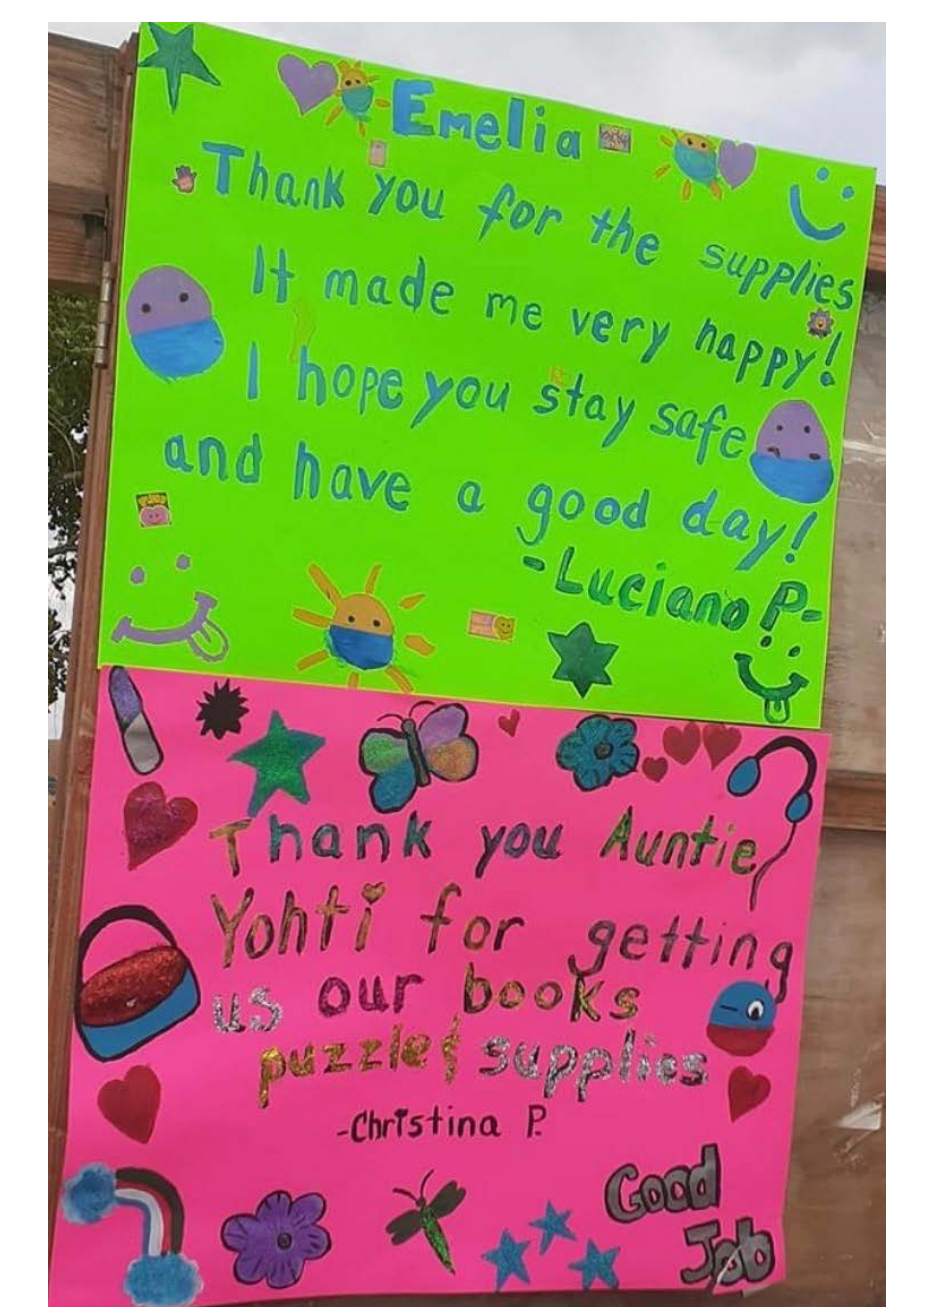 Emelia
Thank you for the supplies
It made me very happy!
I hope you stay safe
and have a good day!
-Luciano P-
Thank you Auntie
Yohti for getting
us our books
puzzle & supplies
-Christina P.
Good
Job